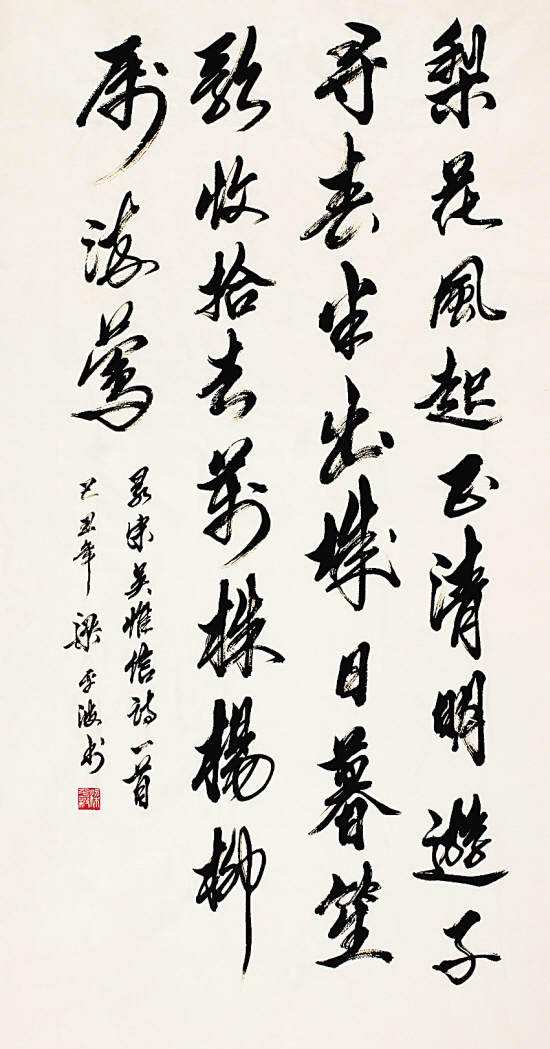 梨花風起正清明遊子
尋春半出城日暮笙
歌收拾去萬株楊柳
属流鶯
录宋吴惟信詩一首
己丑年 梁平波书